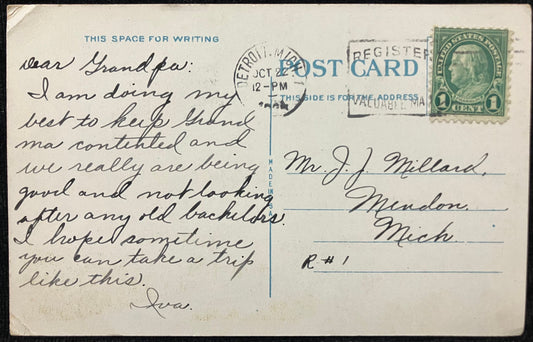 THIS SPACE FOR WRITING
Dear Grandpa:
I am doing my
best to keep Grand
ma contented and
we really are being
good and not looking
after any old bachelors.
I hope sometime
you can take a trip
like this.
Iva.
DETROIT, MICH.
OCT 22
12-PM
REGISTER
VALUABLE MA
POST CARD
THIS SIDE IS FOR THE ADDRESS
UNITED STATES POSTAGE
1 CENT 1
MADE IN
Mr. J. J. Millard,
Mendon.
Mich.
R#1